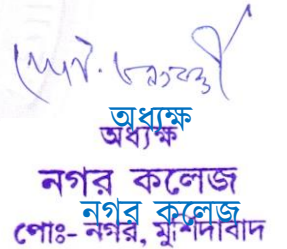 অধ্যক্ষ
অধ্যক্ষ
নগর কলেজ
নগর কলেজ
পোঃ- নগর, মুর্শিদাবাদ